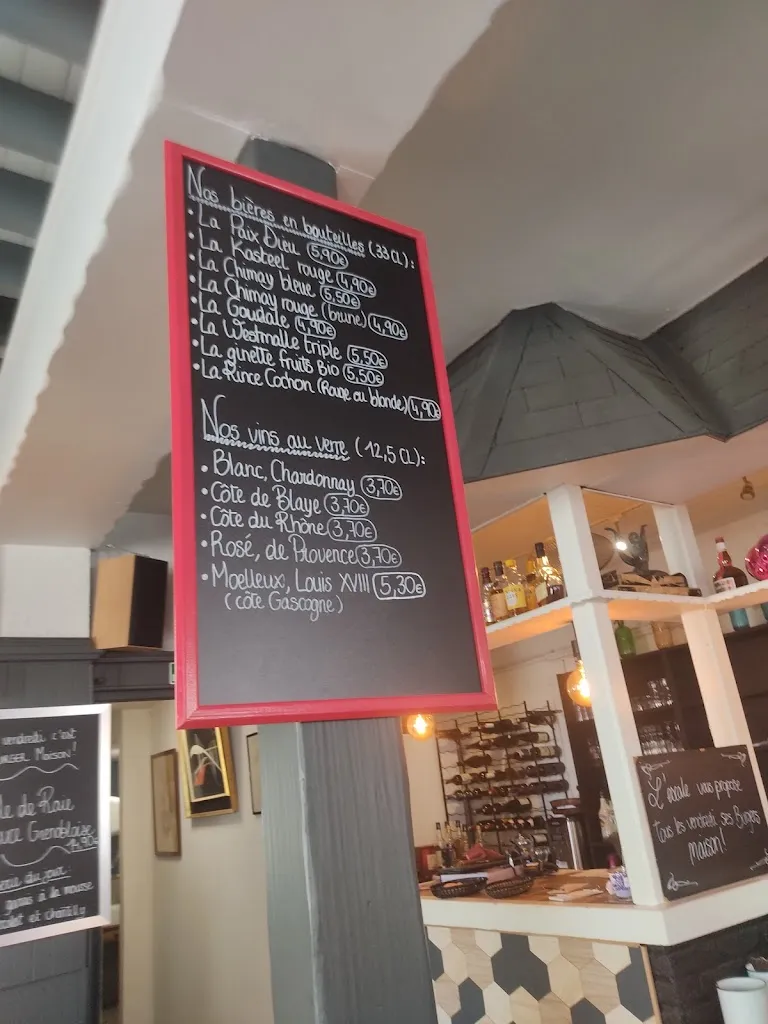 Nos bières en bouteilles (33 CL):
• La Paix Dieu 5,90€
• La Kasteel rouge 4,90€
• La Chimay bleue 5,50€
• La Chimay rouge (brune) 4,90€
• La Goudale 4,90€
• La Westmalle triple 5,50€
• La ginette fruits Bio 5,50€
• La Rince Cochon (Rouge ou blonde) 4,90€
Nos vins au verre (12,5 CL):
• Blanc, Chardonnay 3,70€
• Côte de Blaye 3,70€
• Côte du Rhône 3,70€
• Rosé, de Provence 3,70€
• Moelleux, Louis XVIII 5,30€
(côte Gascogne)
vendredi c'est
Maison!
de Raie
Grenobloise
14,90€
du jour:
à la mousse
et chantilly
L'escale vous propose
tous les vendredi ses Burgers
maison!